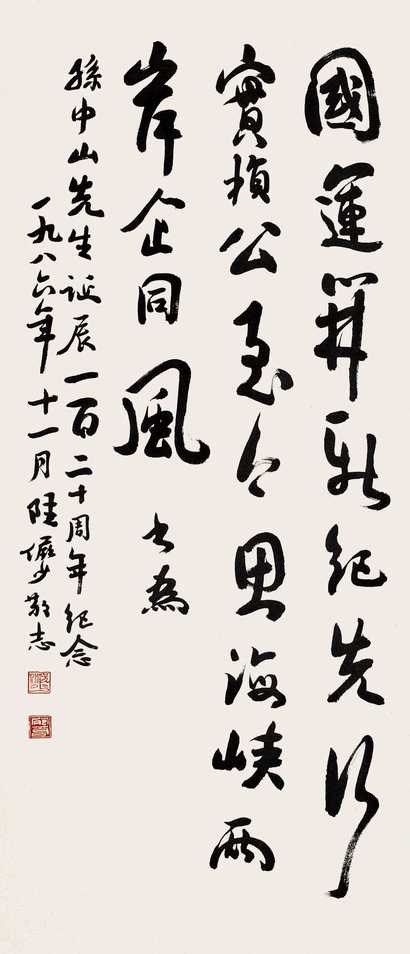 國運開新紀先行
實賴公至今思海峽兩
岸企同風 書為
孫中山先生誕辰一百二十周年紀念
一九八六年十一月陸儼少敬志